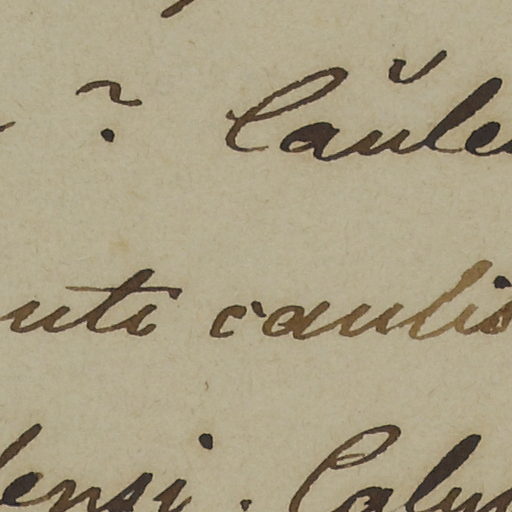 ? Caŭle
uti caulis
densi. Caly